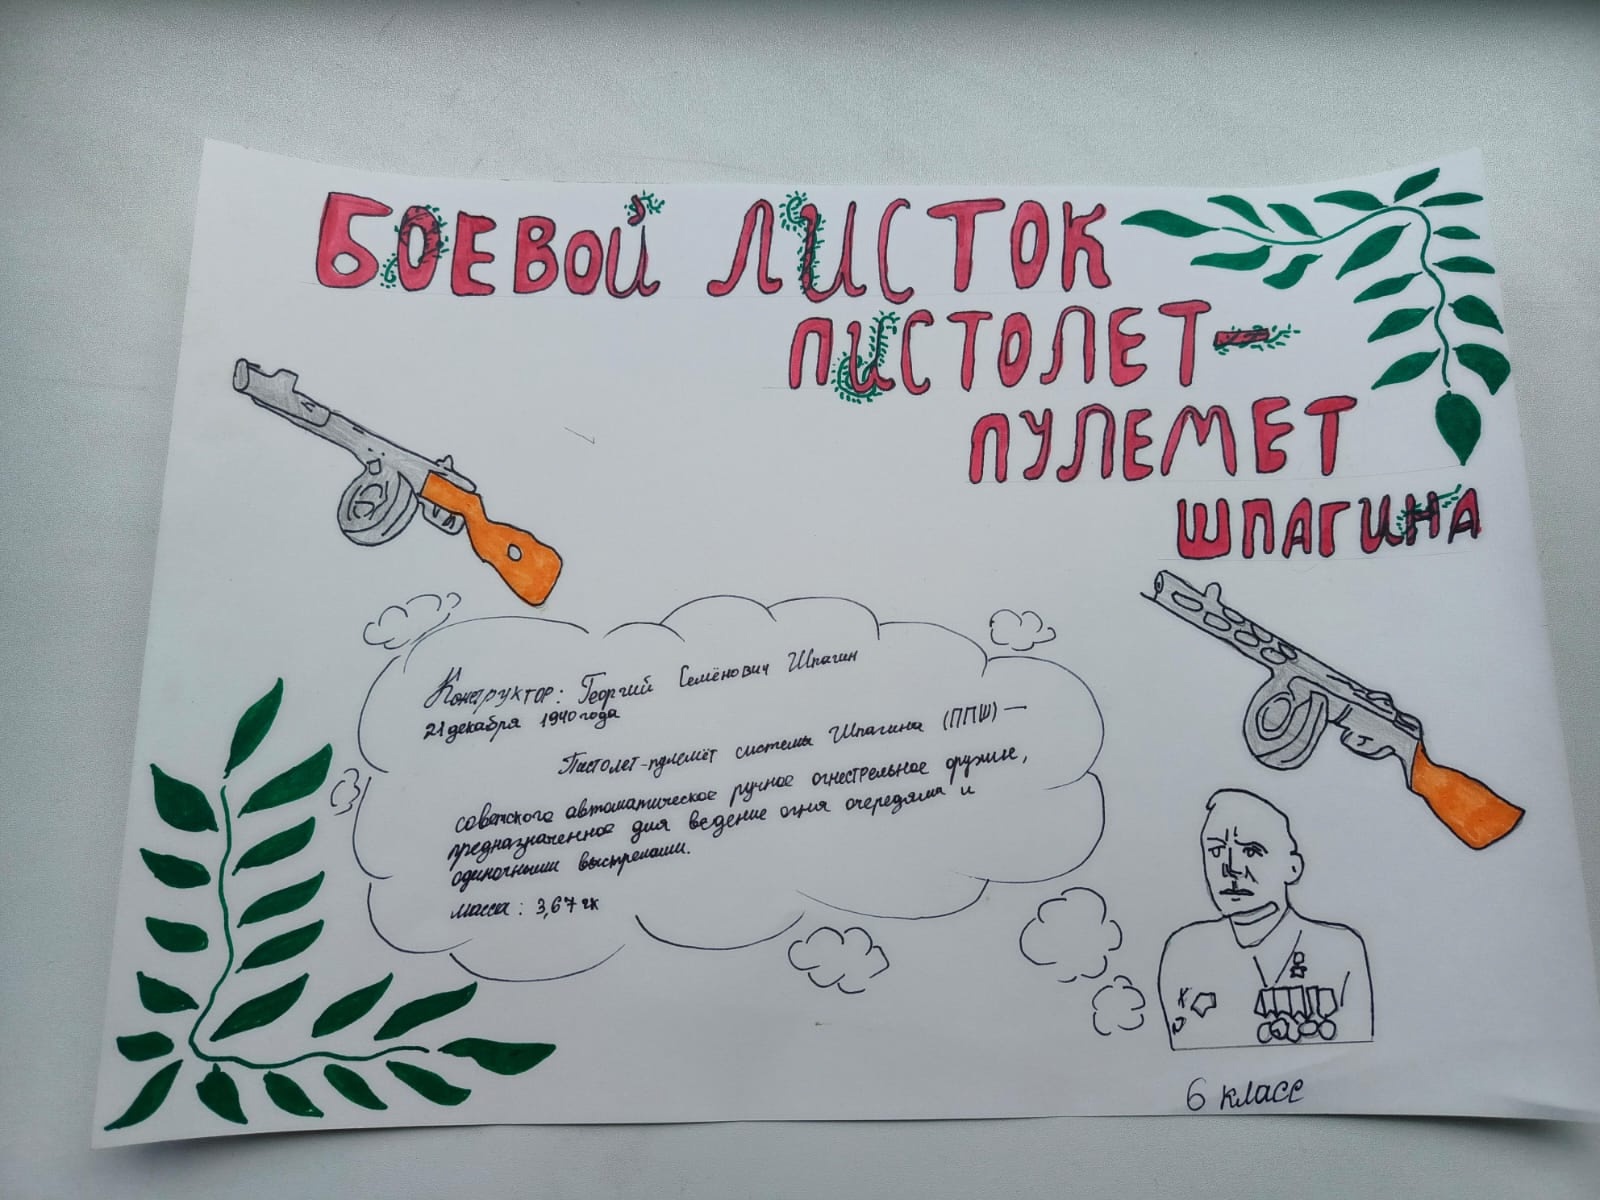 БОЕВОЙ ЛИСТОК
ПИСТОЛЕТ-
ПУЛЕМЕТ
ШПАГИНА
Конструктор: Георгий Семёнович Шпагин
21 декабря 1940 года
Пистолет-пулемёт системы Шпагина (ППШ) —
советского автоматическое ручное огнестрельное оружие,
предназначенное для ведение огня очередями и
одиночными выстрелами.
масса: 3,67 гк
6 класс